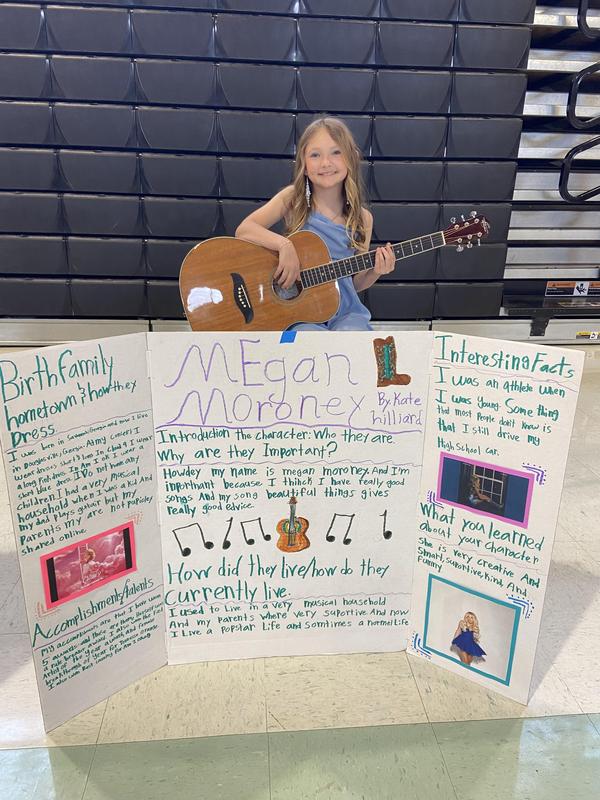 Birth family
hometown & how they
Dress.
I was born in Savannah Georgia and now I live
in Douglasville, Georgia. At my Concert I
short blue dress. I Do not have any
children. I had a very musical
household when I was a kid And
my dad plays guitar but my
Parents my are not
shared online.
Accomplishments/talents
My accomplishments are that I have won
5 awards and those are
Artist of the year
breakthrough of year for
I also won Best
MEgan
Moroney
By. Kate
hilliard
Introduction the character: Who they are.
Why are they Important?
Howdey my name is megan moroney And I'm
important because I think I have really good
songs And my song beautiful things gives
really good edvice.
How did they live/how do they
currently live.
I used to Live in a very musical household
And my parents where very suportive And now
I Live a Popstar Life and somtimes a normel Life
Interesting Facts
I was an athlete when
I was young. Some thing
that most People don't know is
that I still drive my
High School car.
What you learned
about your character
She is very creative And
Smart, suportive, kind, And
Funny